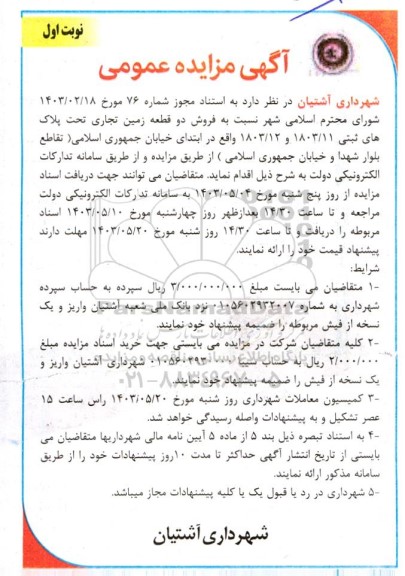 نوبت اول
آگهی مزایده عمومی
شهرداری آشتیان در نظر دارد به استناد مجوز شماره ۷۶ مورخ ۱۴۰۳/۰۲/۱۸
شورای محترم اسلامی شهر نسبت به فروش دو قطعه زمین تجاری تحت پلاک
های ثبتی ۱۸۰۳/۱۱ و ۱۸۰۳/۱۲ واقع در ابتدای خیابان جمهوری اسلامی( تقاطع
بلوار شهدا و خیابان جمهوری اسلامی ) از طریق مزایده و از طریق سامانه تدارکات
الکترونیکی دولت به شرح ذیل اقدام نماید. متقاضیان می توانند جهت دریافت اسناد
مزایده از روز پنج شنبه مورخ ۱۴۰۳/۰۵/۰۴ به سامانه تدرکات الکترونیکی دولت
مراجعه و تا ساعت ۱۴/۳۰ بعدازظهر روز چهارشنبه مورخ ۱۴۰۳/۰۵/۱۰ اسناد
مربوطه را دریافت و تا ساعت ۱۴/۳۰ روز شنبه مورخ ۱۴۰۳/۰۵/۲۰ مهلت دارند
پیشنهاد قیمت خود را ارائه نمایند.
شرایط:
۱- متقاضیان می بایست مبلغ ۳/۰۰۰/۰۰۰/۰۰۰ ریال سپرده به حساب سپرده
شهرداری به شماره ۰۱۰۵۶۰۲۹۳۲۰۰۷ نزد بانک ملی شعبه آشتیان واریز و یک
نسخه از فیش مربوطه را ضمیمه پیشنهاد خود نمایند.
۲- کلیه متقاضیان شرکت در مزایده می بایستی جهت خرید اسناد مزایده مبلغ
۲/۰۰۰/۰۰۰ ریال به حساب سیبا شهرداری آشتیان واریز و
یک نسخه از فیش را ضمیمه پیشنهاد خود نمایند.
۳- کمیسیون معاملات شهرداری روز شنبه مورخ ۱۴۰۳/۰۵/۲۰ راس ساعت ۱۵
عصر تشکیل و به پیشنهادات واصله رسیدگی خواهد شد.
۴- به استناد تبصره ذیل بند ۵ از ماده ۵ آیین نامه مالی شهرداریها متقاضیان می
بایستی از تاریخ انتشار آگهی حداکثر تا مدت ۱۰روز پیشنهادات خود را از طریق
سامانه مذکور ارائه نمایند.
۵- شهرداری در رد یا قبول یک یا کلیه پیشنهادات مجاز میباشد.
شهرداری آشتیان